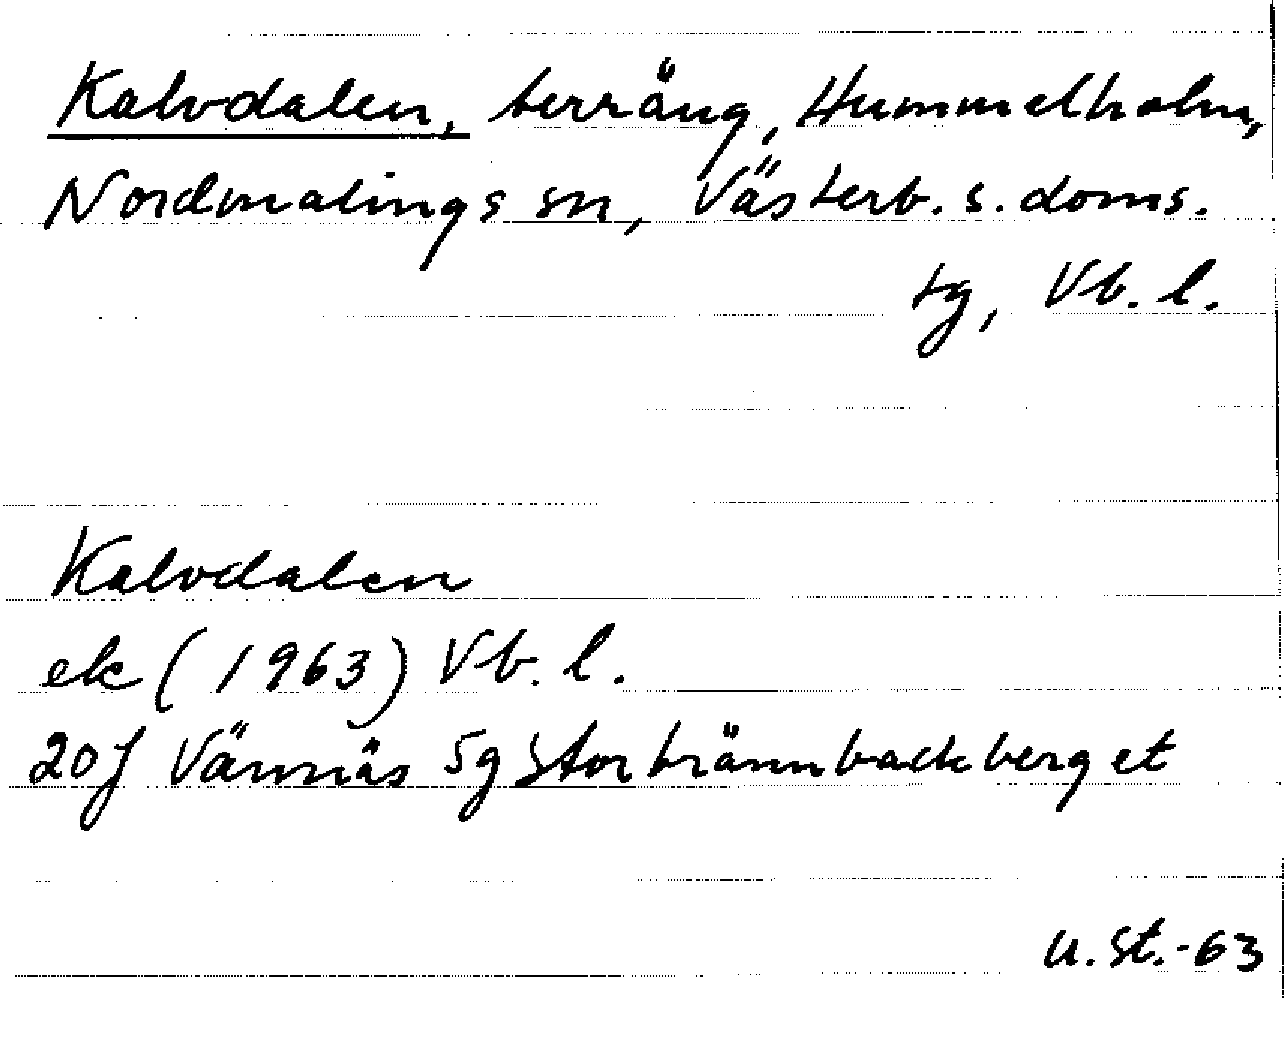 Kalvdalen, terräng, Hummelholm,
Nordmalings sn, Västerb. s. doms.
tg, Vb. l.
Kalvdalen
ek (1963) Vb. l.
20J Vännäs 5g Storbrännbackberget
U. St. -63